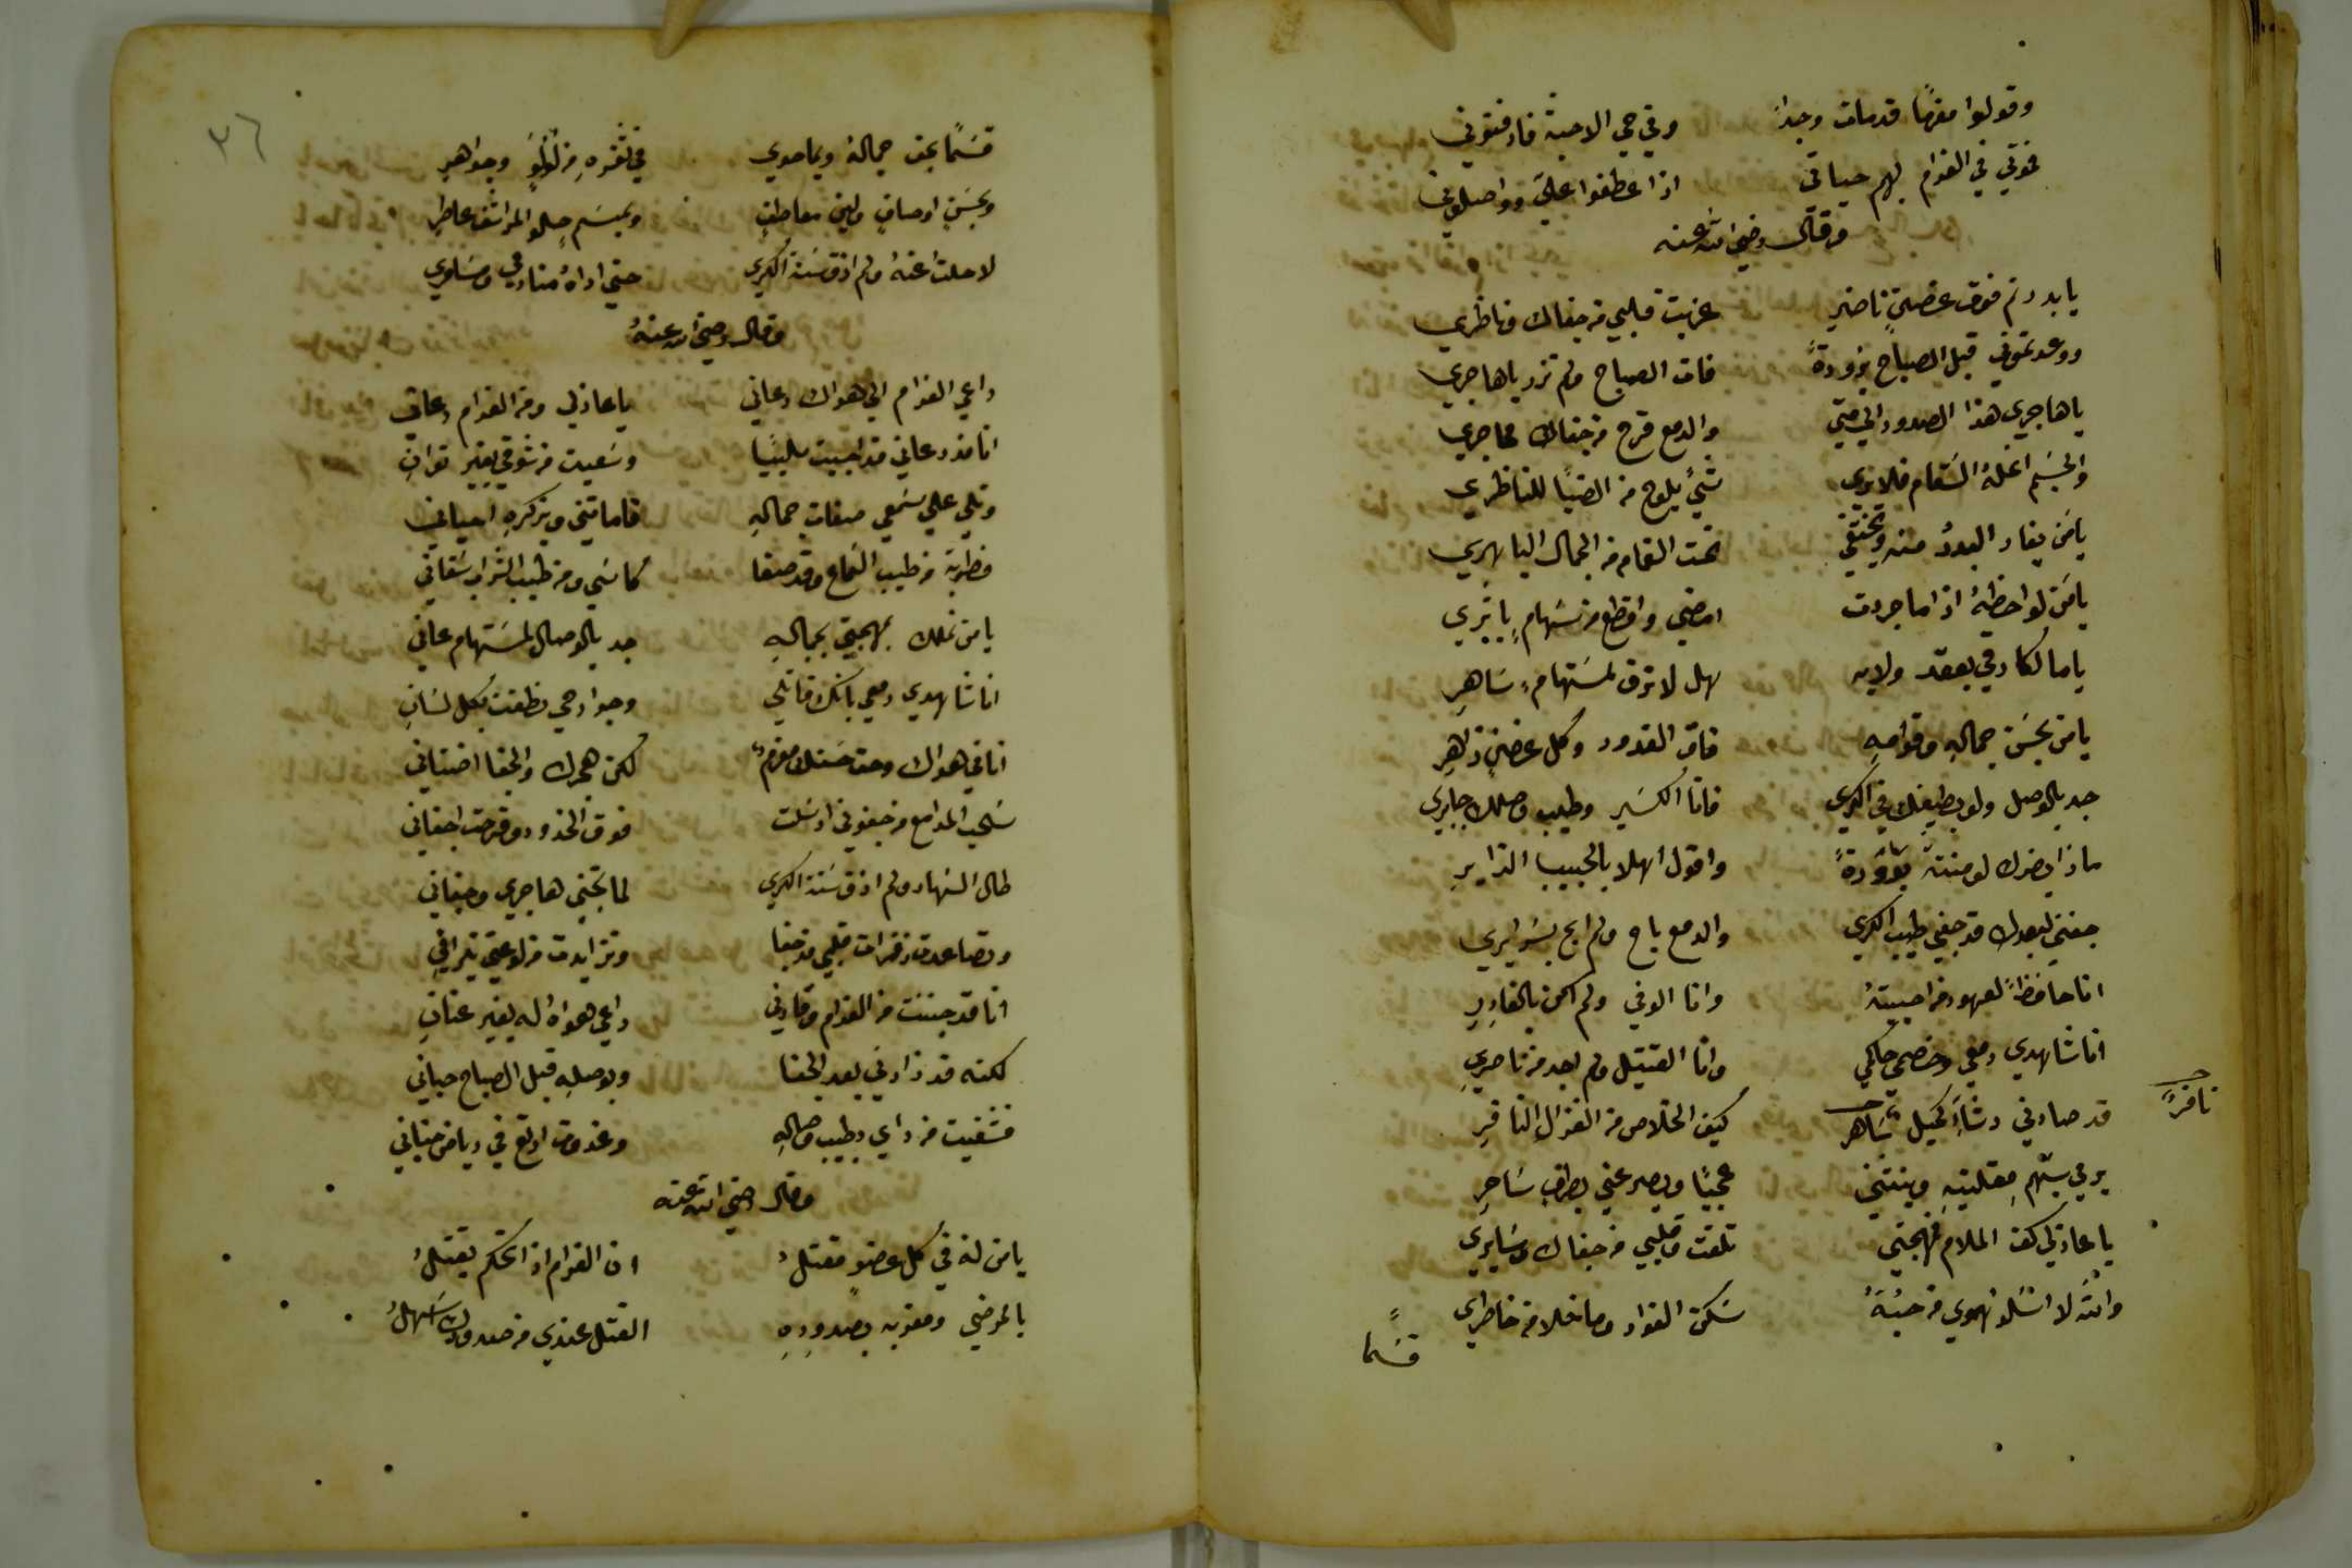 وقولوا مغرمًا قد مات وجدًا وفي حي الاحبة فادفنوني
فموتي في الغرام بهم حياتي اذا عطفوا علي وواصلوني
وقال رضي الله عنه
يا بدر تم فوق غصنٍ ناضر عذبت قلبي من جفاك وناظري
ووعدتموني قبل الصباح بزورةً فات الصباح ولم تزر يا هاجري
يا هاجري هذا الصدود الي متي والدمع قرح من جفاك محاجري
والجسم انحله السقام فلا يري شيءٌ يلوح من الضنا للناظري
يا من يغار البدرُ منه ويختفي تحت الغمام من الجمال الباهري
يا من لواحظهُ اذا ما جردت امضي واقطع من سهامٍ باتري
يا مالكا رقي بعقد ولايه هل لا ترق لمستهامٍ ساهرِ
يا من بحسن جماله وقوامهِ فاق القدود وكل غصنٍ زاهرِ
جد بالوصل ولو بطيفك في الكري فانا الكسير وطيب وصلك جابري
ماذا يضرك لو مننت بزورةً واقول اهلا بالحبيب الزايرِ
جفني لبعدك قد جفي طيب الكري والدمع باح ولم ابح بسرايري
انا حافظاً لعهود من احببتهُ وانا الوفي ولم اكن بالغادِرِ
انا شاهدي دمعي وخصمي حاكمي وانا القتيل ولم اجد من ناصري
قد صادني رشاً كحيل ساهر كيف الخلاص من الغزال النافرِ
نافرً
يرمي بسهم مقلتيه وينثني عجبًا ويصرعني بطرفٍ ساحرِ
يا عاذلي كف الملام فمهجتي تلفت وقلبي من جفاك وسايري
والله لا اسلو الهوي من حبهُ سكن الفواد وما خلا من خاطري
قسمًا
٣٦
قسمًا بحق جماله وبما حوي في ثغره من لؤلؤٍ وجواهرِ
وبحسن اوصافٍ ولين معاطفٍ وبمبسمٍ حلو المراشف عاطرِ
لا حلت عنهُ ولم اذق سنة الكري حتي اراهُ منادمي ومسامري
وقال رضي الله عنهُ
داعي الغرام الي هواك دعاني يا عاذلي ومن الغرام دعاني
انا مذ دعاني قد اجبت ملبيًا وسعيت من شوقي بغير توانِ
وتلي علي سمعي صفات جمالهِ فاماتني وبذكرهِ احياني
فطربت من طيب السماع وقد صفا كاسي ومن طيب الشراب سقاني
يا من تملك بمهجتي بجمالهِ جد بالوصال لمستهام عاني
انا شاهدي دمعي بانك قاتلي وجوارحي نطقت بكل لسانِ
انا في هواك وحق حسنك مغرمٌ لكن هجرك والجفا اضناني
سحب المدامع من جفوني ارسلت فوق الخدود وقرحت اجفاني
طال السهاد ولم اذق سنة الكري لما تجني هاجري وجفاني
وتصاعدت زفرات قلبي مذ جفا وتزايدت من لوعتي نيراني
انا قد جننت من الغرام وقادني داعي هواه له بغير عنانِ
لكنه قد زارني بعد الجفا وبوصله قبل الصباح حباني
فشفيت من داي بطيب وصالهِ وغدوت ارتع في رياض جناني
وقال رضي الله عنه
يا من له في كل عضوٍ مقتلُ ان الغرام اذا تحكم يقتلُ
يا ممرضي ومعذبي بصدودِهِ القتل عندي من صدودك اسهلُ